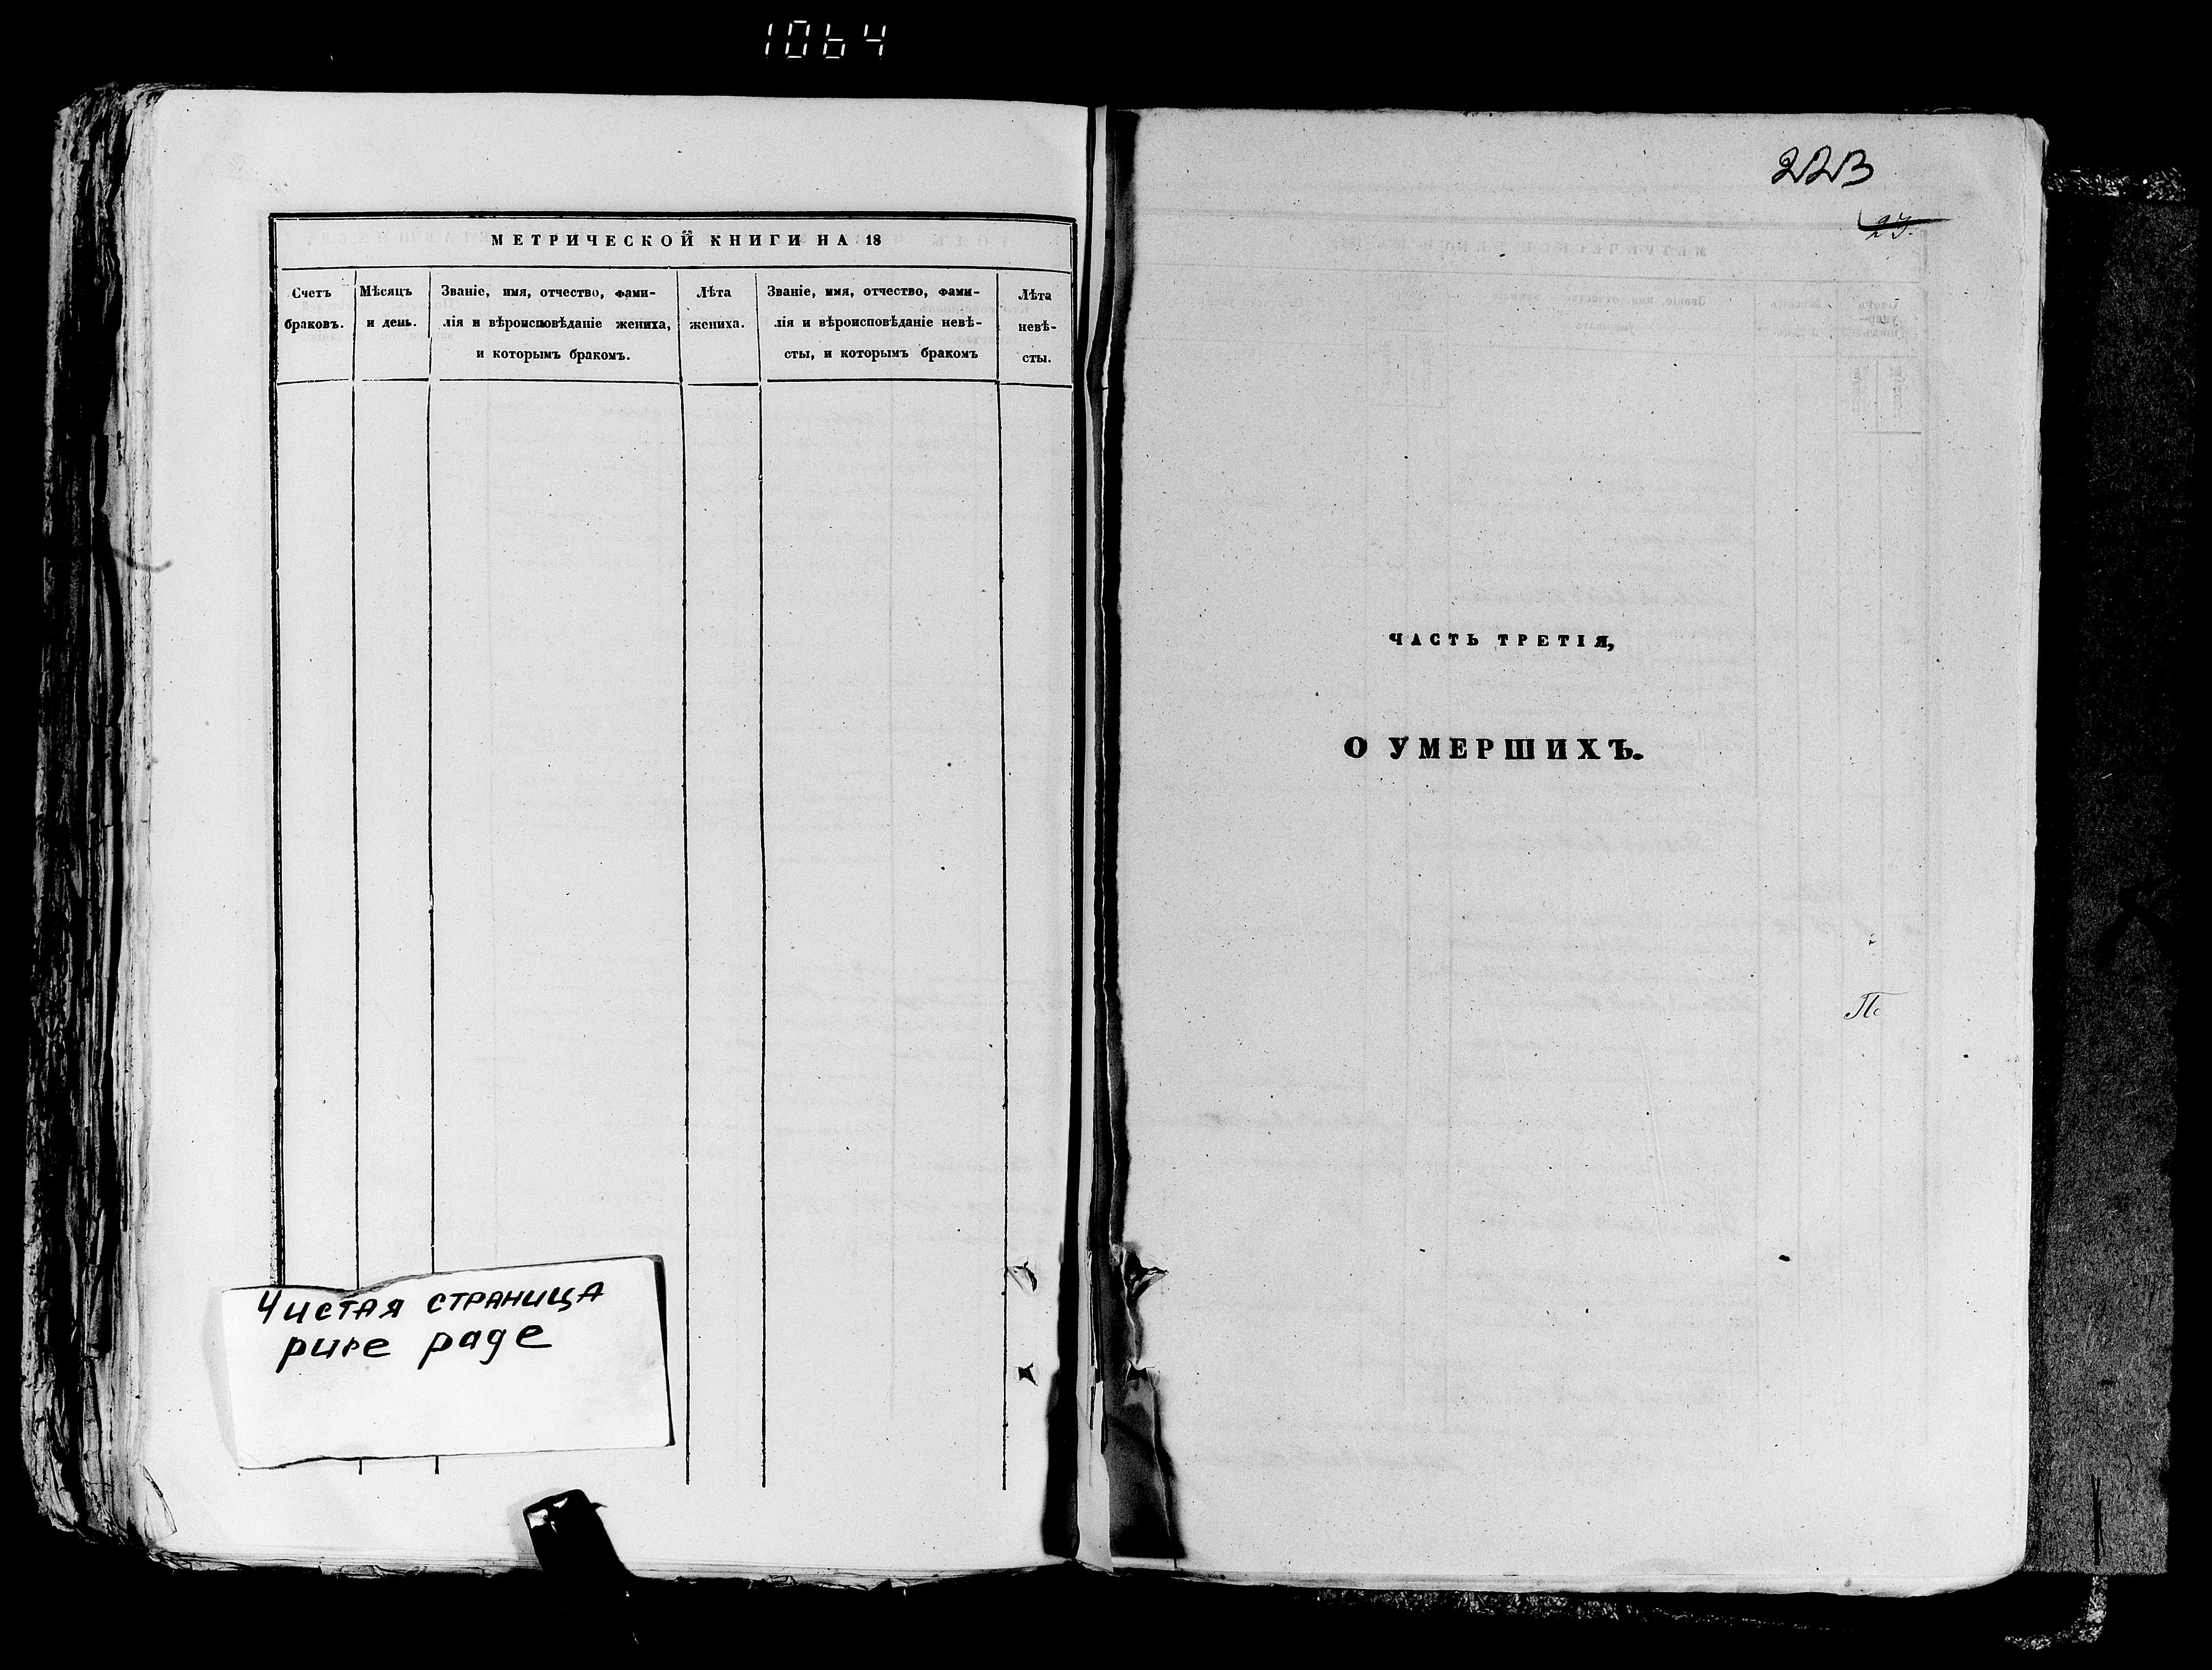 1064
МЕТРИЧЕСКОЙ КНИГИ НА 18
Счетъ
браковъ.
Мѣсяцъ
и день.
Званіе, имя, отчество, фами-
лія и вѣроисповѣданіе жениха,
и которымъ бракомъ.
Лѣта
жениха.
Званіе, имя, отчество, фами-
лія и вѣроисповѣданіе невѣ-
сты, и которымъ бракомъ
Лѣта
невѣ-
сты.
Чистая страница
pure page
223
ЧАСТЬ ТРЕТІЯ,
О УМЕРШИХЪ.
По